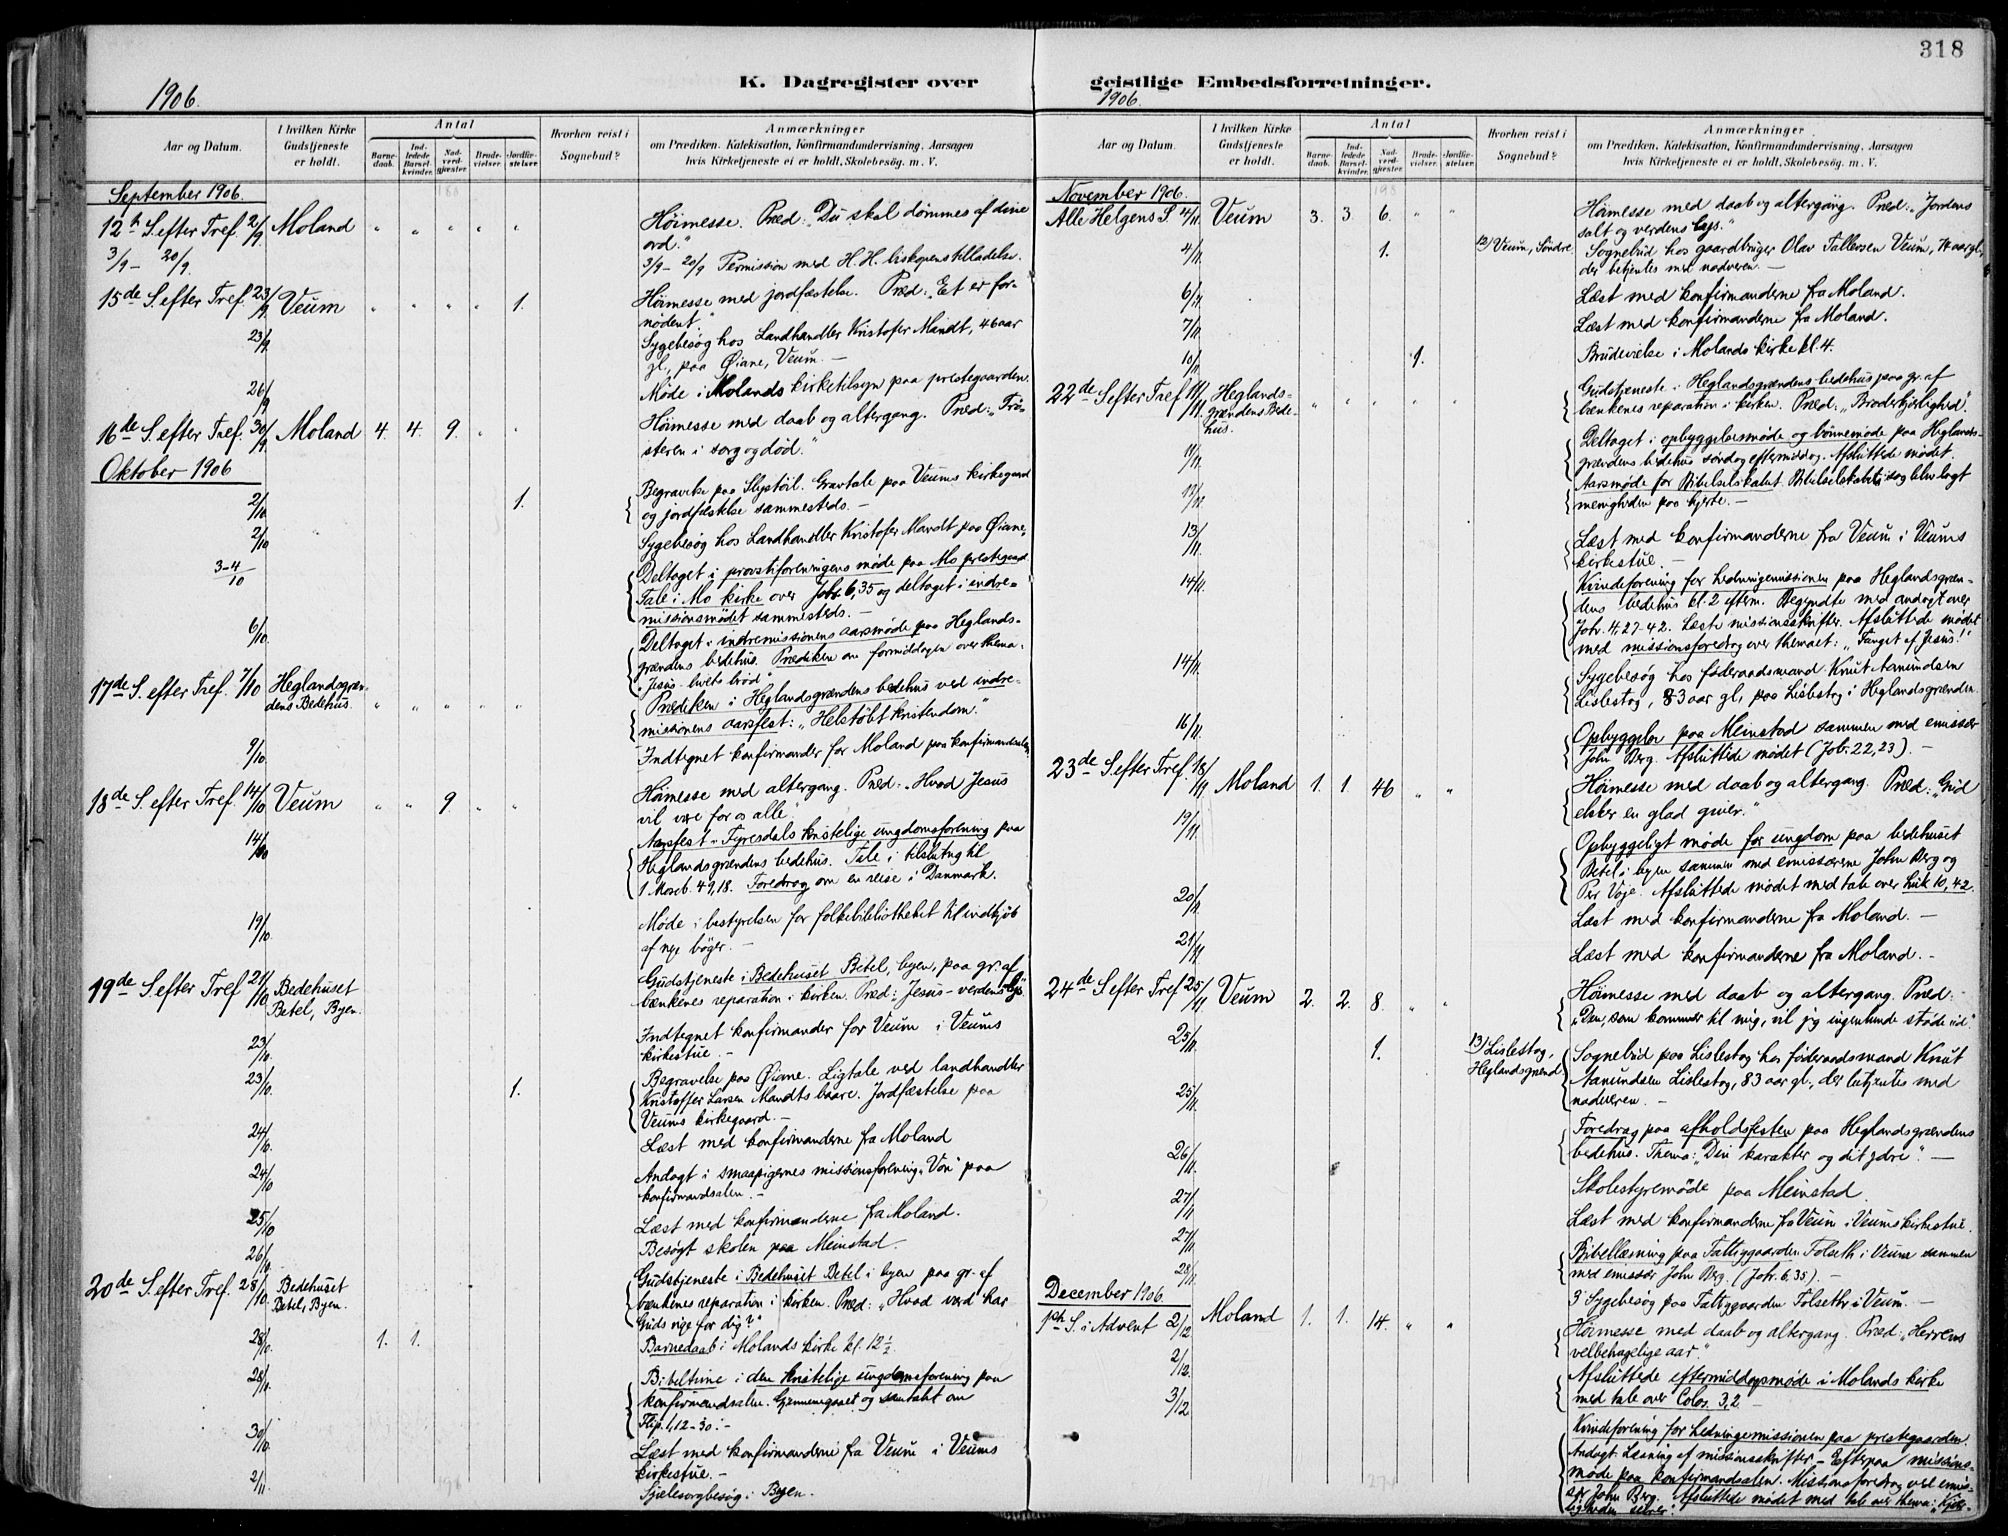 318
K. Dagregister over
geistlige Embedsforretninger.
1906.
Aar og Datum.
I hvilken Kirke
Gudstjeneste
er holdt.
Antal
Barne-
daab.
Ind-
ledede
Barsel-
kvinder.
Nad-
verd-
gjester.
Brude-
vielser.
Jordfæ-
stelser.
Hvorhen reist i
Sognebud?
Anmærkninger
om Prædiken, Katekisation, Konfirmandundervisning, Aarsagen
hvis Kirketjeneste ei er holdt, Skolebesøg, m. V.
September 1906.
12te S. efter Tref. 2/9 Moland " " " " " Høimesse. Præd: "Du skal dømmes af dine
ord."
3/9 - 20/9. 3/9 - 20/9 Permission med H. H. biskopens tilladelse.
15de S. efter Tref. 23/9 Veum " " " " 1. Høimesse med jordfæstelse. Præd: "Et er for-
nødent."
23/9. Sygebesøg hos Landhandler Kristofer Mandt, 46 aar
gl., paa Øiane, Veum. -
26/9 Møde i Molands kirketilsyn paa prestegaarden.
16de S. efter Tref. 30/9. Moland 4. 4. 9. " " Høimesse med daab og altergang. Præd: "Trø-
steren i sorg og død."
Oktober 1906
2/10 1. Begravelse paa Slystøil. Gravtale paa Veums kirkegaard
og jordfæstelse sammesteds. -
2/10 Sygebesøg hos Landhandler Kristofer Mandt paa Øiane.
3-4/10 Deltaget i provstiforeningens møde paa Mo prestegaard
Tale i Mo kirke over Joh. 6,35 og deltaget i indre-
missionsmødet sammesteds. -
6/10. Deltaget i indremissionens aarsmøde paa Heglands-
grændens bedehus. Prædiken om formiddagen over thema:
"Jesus - livets brød"
17de S. efter Tref. 7/10 Heglandsgræn-
dens Bedehus. " " " " " Prædiken i Heglandsgrændens bedehus ved indre-
missionens aarsfest: "Helstøbt kristendom."
9/10. Indtegnet konfirmander for Moland paa konfirmandsalen.
18de S. efter Tref. 14/10 Veum " " 9. " " Høimesse med altergang. Præd: "Hvad Jesus
vil være for os alle"
14/10 Aarsfest i Fyresdals kristelige ungdomsforening paa
Heglandsgrændens bedehus. Tale i tilslutng til
1 Moseb. 49,18. Foredrag om en reise i Danmark.
19/10. Møde i bestyrelsen for folkebibliotheket til indkjøb
af nye bøger. -
19de S. efter Tref 21/10 Bedehuset
Betel, Byen. Gudstjeneste i Bedehuset Betel, byen, paa gr. af
bænkenes reparation i kirken. Præd: "Jesus - verdens lys
23/10. Indtegnet konfirmander for Veum i Veums
kirkestue. -
23/10. 1. Begravelse paa Øiane. Ligtale ved landhandler
Kristoffer Larsen Mandts baare. Jordfæstelse paa
Veums kirkegaard. -
24/10. Læst med konfirmanderne fra Moland
24/10 Andagt i smaapigernes missionsforening "Von" paa
konfirmandsalen. -
25/10 Læst med konfirmanderne fra Moland.
26/10 Besøgt skolen paa Meinstad.
20de S. efter Tref. 28/10. Bedehuset
Betel, Byen. Gudstjeneste i Bedehuset Betel i byen paa gr. af
bænkenes reparation i kirken. Præd: "Hvad værd har
Guds rige for dig?"
28/10. 1. 1. Barnedaab i Molands kirke kl. 12 1/2.
28/10. Bibeltime i den kristelige ungdomsforening paa
konfirmandsalen. Gjennemgaaet og samtalt om
Flip. 1,12-30. -
30/10. Læst med konfirmanderne fra Veum i Veums
kirkestue. -
2/11 Sjælesorgbesøg i Byen.
1906.
Aar og Datum.
I hvilken Kirke
Gudstjeneste
er holdt.
Antal
Barne-
daab.
Ind-
ledede
Barsel-
kvinder.
Nad-
verd-
gjester.
Brude-
vielser.
Jordfæ-
stelser.
Hvorhen reist i
Sognebud?
Anmærkninger
om Prædiken, Katekisation, Konfirmandundervisning, Aarsagen
hvis Kirketjeneste ei er holdt, Skolebesøg, m. V.
November 1906.
Alle Helgens S. 4/11. Veum 3. 3. 6. " " Høimesse med daab og altergang. Præd: "Jordens
salt og verdens lys."
4/11. 1. 12) Veum, Søndre. Sognebud hos gaardbruger Olav Tallevsen Veum, 74 aar gl.,
der betjentes med nadveren. -
6/11. Læst med konfirmanderne fra Moland.
7/11. Læst med konfirmanderne fra Moland.
10/11 1. Brudevielse i Molands kirke kl. 4.
22de S efter Tref 11/11 Heglands-
grændens Bede-
hus. " " " " " Gudstjeneste i Heglandsgrændens bedehus paa gr. af
bænkenes reparation i kirken. Præd: "Broderkjærlighed".
11/11. Deltaget i opbyggelsesmøde og bønnemøde paa Heglands-
grændens bedehus søndag eftermiddag. Afsluttede mødet.
Aarsmøde for Bibelselskabet. Bibelselskabets sag blev lagt
menigheden paa hjerte. -
13/11. Læst med konfirmanderne fra Veum i Veums
kirkestue. -
14/11. Kvindeforening for hedningemissionen paa Heglandsgræn-
dens bedehus kl. 2 efterm. Begyndte med andagt over
Joh. 4,27-42. Læste missionsskrifter. Afsluttede mødet
med missionsforedrag over themaet: "Fanget af Jesus!"
14/11. Sygebesøg hos føderaadsmand Knut Aanundsen
Lislestog, 83 aar gl., paa Lislestog i Heglandsgrænden.
16/11. Opbyggelse paa Meinstad sammen med emissær
John Berg. Afsluttede mødet (Job. 22,23). -
23de S efter Tref. 18/11 Moland 1. 1. 46 " " Høimesse med daab og altergang. Præd: "Gud
elsker en glad giver."
19/11. Opbyggeligt møde for ungdom paa bedehuset
Betel i byen sammen med emissærene John Berg og
Per Voje. Afsluttede mødet med tale over Luk 10,42.
20/11. Læst med konfirmanderne fra Moland. -
21/11. Læst med konfirmanderne fra Moland. -
24de S efter Tref 25/11 Veum 2. 2. 8. " " Høimesse med daab og altergang. Præd:
"Den, som kommer til mig, vil jeg ingenlunde støde ud."
25/11. 1. 13) Lislestog,
Heglandsgrænd Sognebud paa Lislestog hos føderaadsmand Knut
Aanundsen Lislestog, 83 aar gl., der betjentes med
nadveren. -
25/11. Foredrag paa afholdsfesten paa Heglandsgrændens
bedehus. Thema: "Din karakter og dit ydre". -
26/11. Skolestyremøde paa Meinstad.
27/11 Læst med konfirmanderne fra Veum i Veums kirkestue.
27/11. Bibellæsning paa Fattiggaarden Folseth i Veum sammen
med emissær John Berg. (Joh. 6,35). -
28/11. 3 Sygebesøg paa Fattiggaarden Folseth i Veum. -
December 1906.
1ste S. i Advent 2/12 Moland 1. 1. 14. " " Høimesse med daab og altergang. Præd: "Herrens
velbehagelige aar."
2/12. Afsluttede eftermiddagsmøde i Molands kirke
med tale over Colos. 3,2 -
3/12 Kvindeforening for hedningemissionen paa prestegaarden.
Andagt. Læsning af missionsskrifter. - Efterpaa missions-
møde paa konfirmandsalen. Missionsforedrag ved emis-
sær John Berg. Afsluttede mødet med tale over thema: "Kjær-
ligheden seirer."